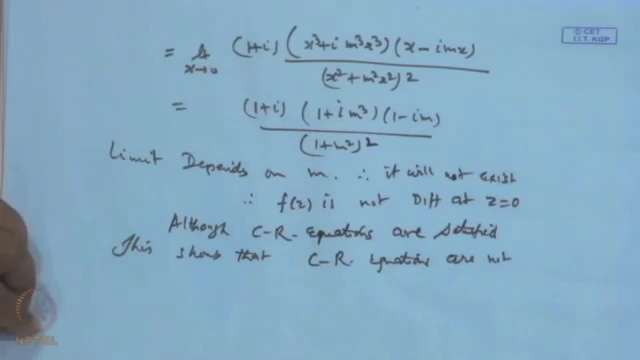 = lt x→0 (1+i) (x³+i m³x³) (x-imx) / (x²+m²x²)²
= (1+i) (1+i m³) (1-im) / (1+m²)²
Limit Depends on m. ∴ it will not exist
∴ f(z) is not Diff at z=0
Although C-R- Equations are satisfied
This shows that C-R. Equations are not
© CET
I.I.T. KGP
NPTEL